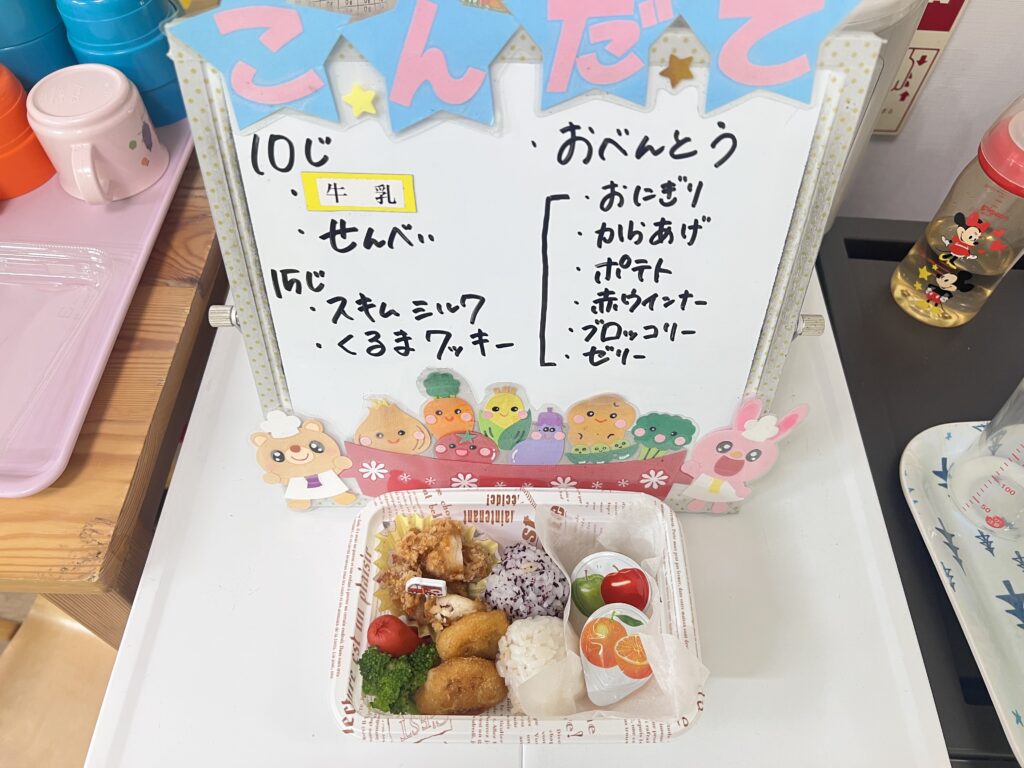 こんだて
10じ
・牛乳
・せんべい
15じ
・スキムミルク
・くるまクッキー
・おべんとう
・おにぎり
・からあげ
・ポテト
・赤ウインナー
・ブロッコリー
・ゼリー
maintenant
100
50